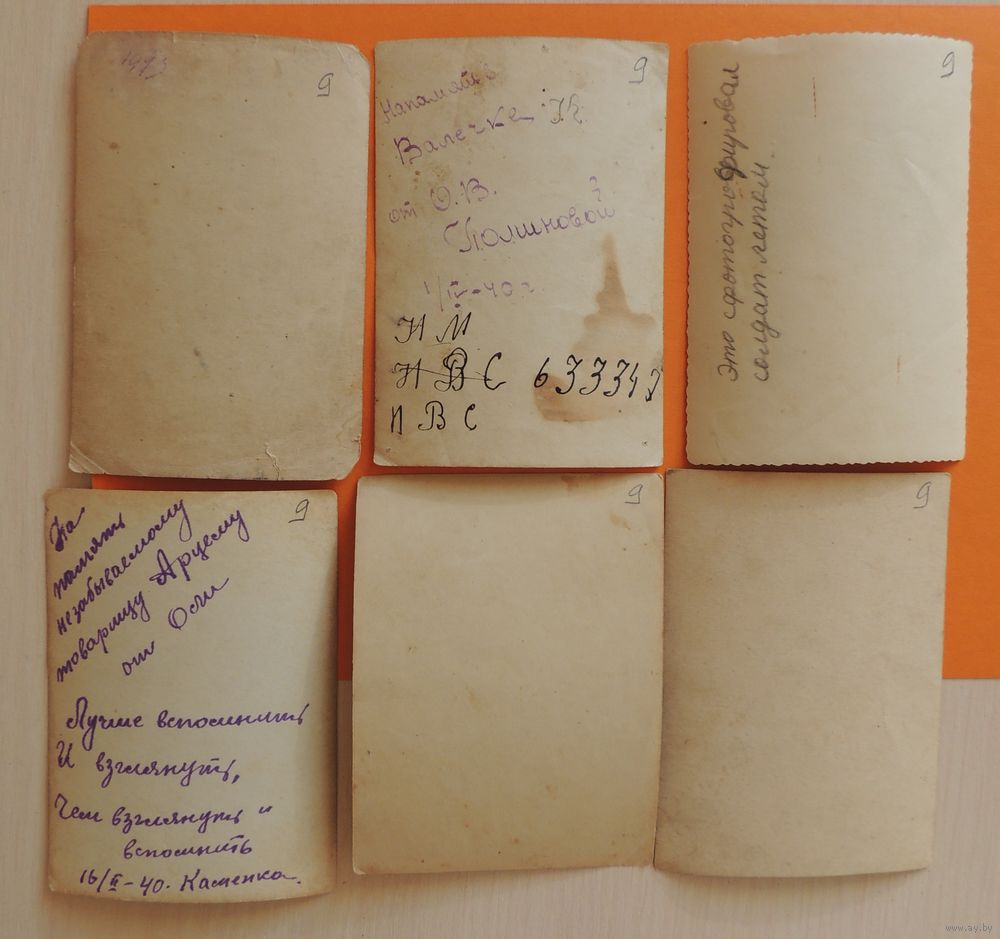 9
На память
Валечке К.
от О.В.
1/IV-40 г.
Н М
Н В С 63334
Н В С
9
Это сфотографировал
солдат летом.
9
На
память
незабываемому
товарищу Арцему
от Оли
Лучше вспомнить
И взглянуть,
Чем взглянуть и
вспомнить
16/II-40. Каменка.
9
9
9
www.ay.by